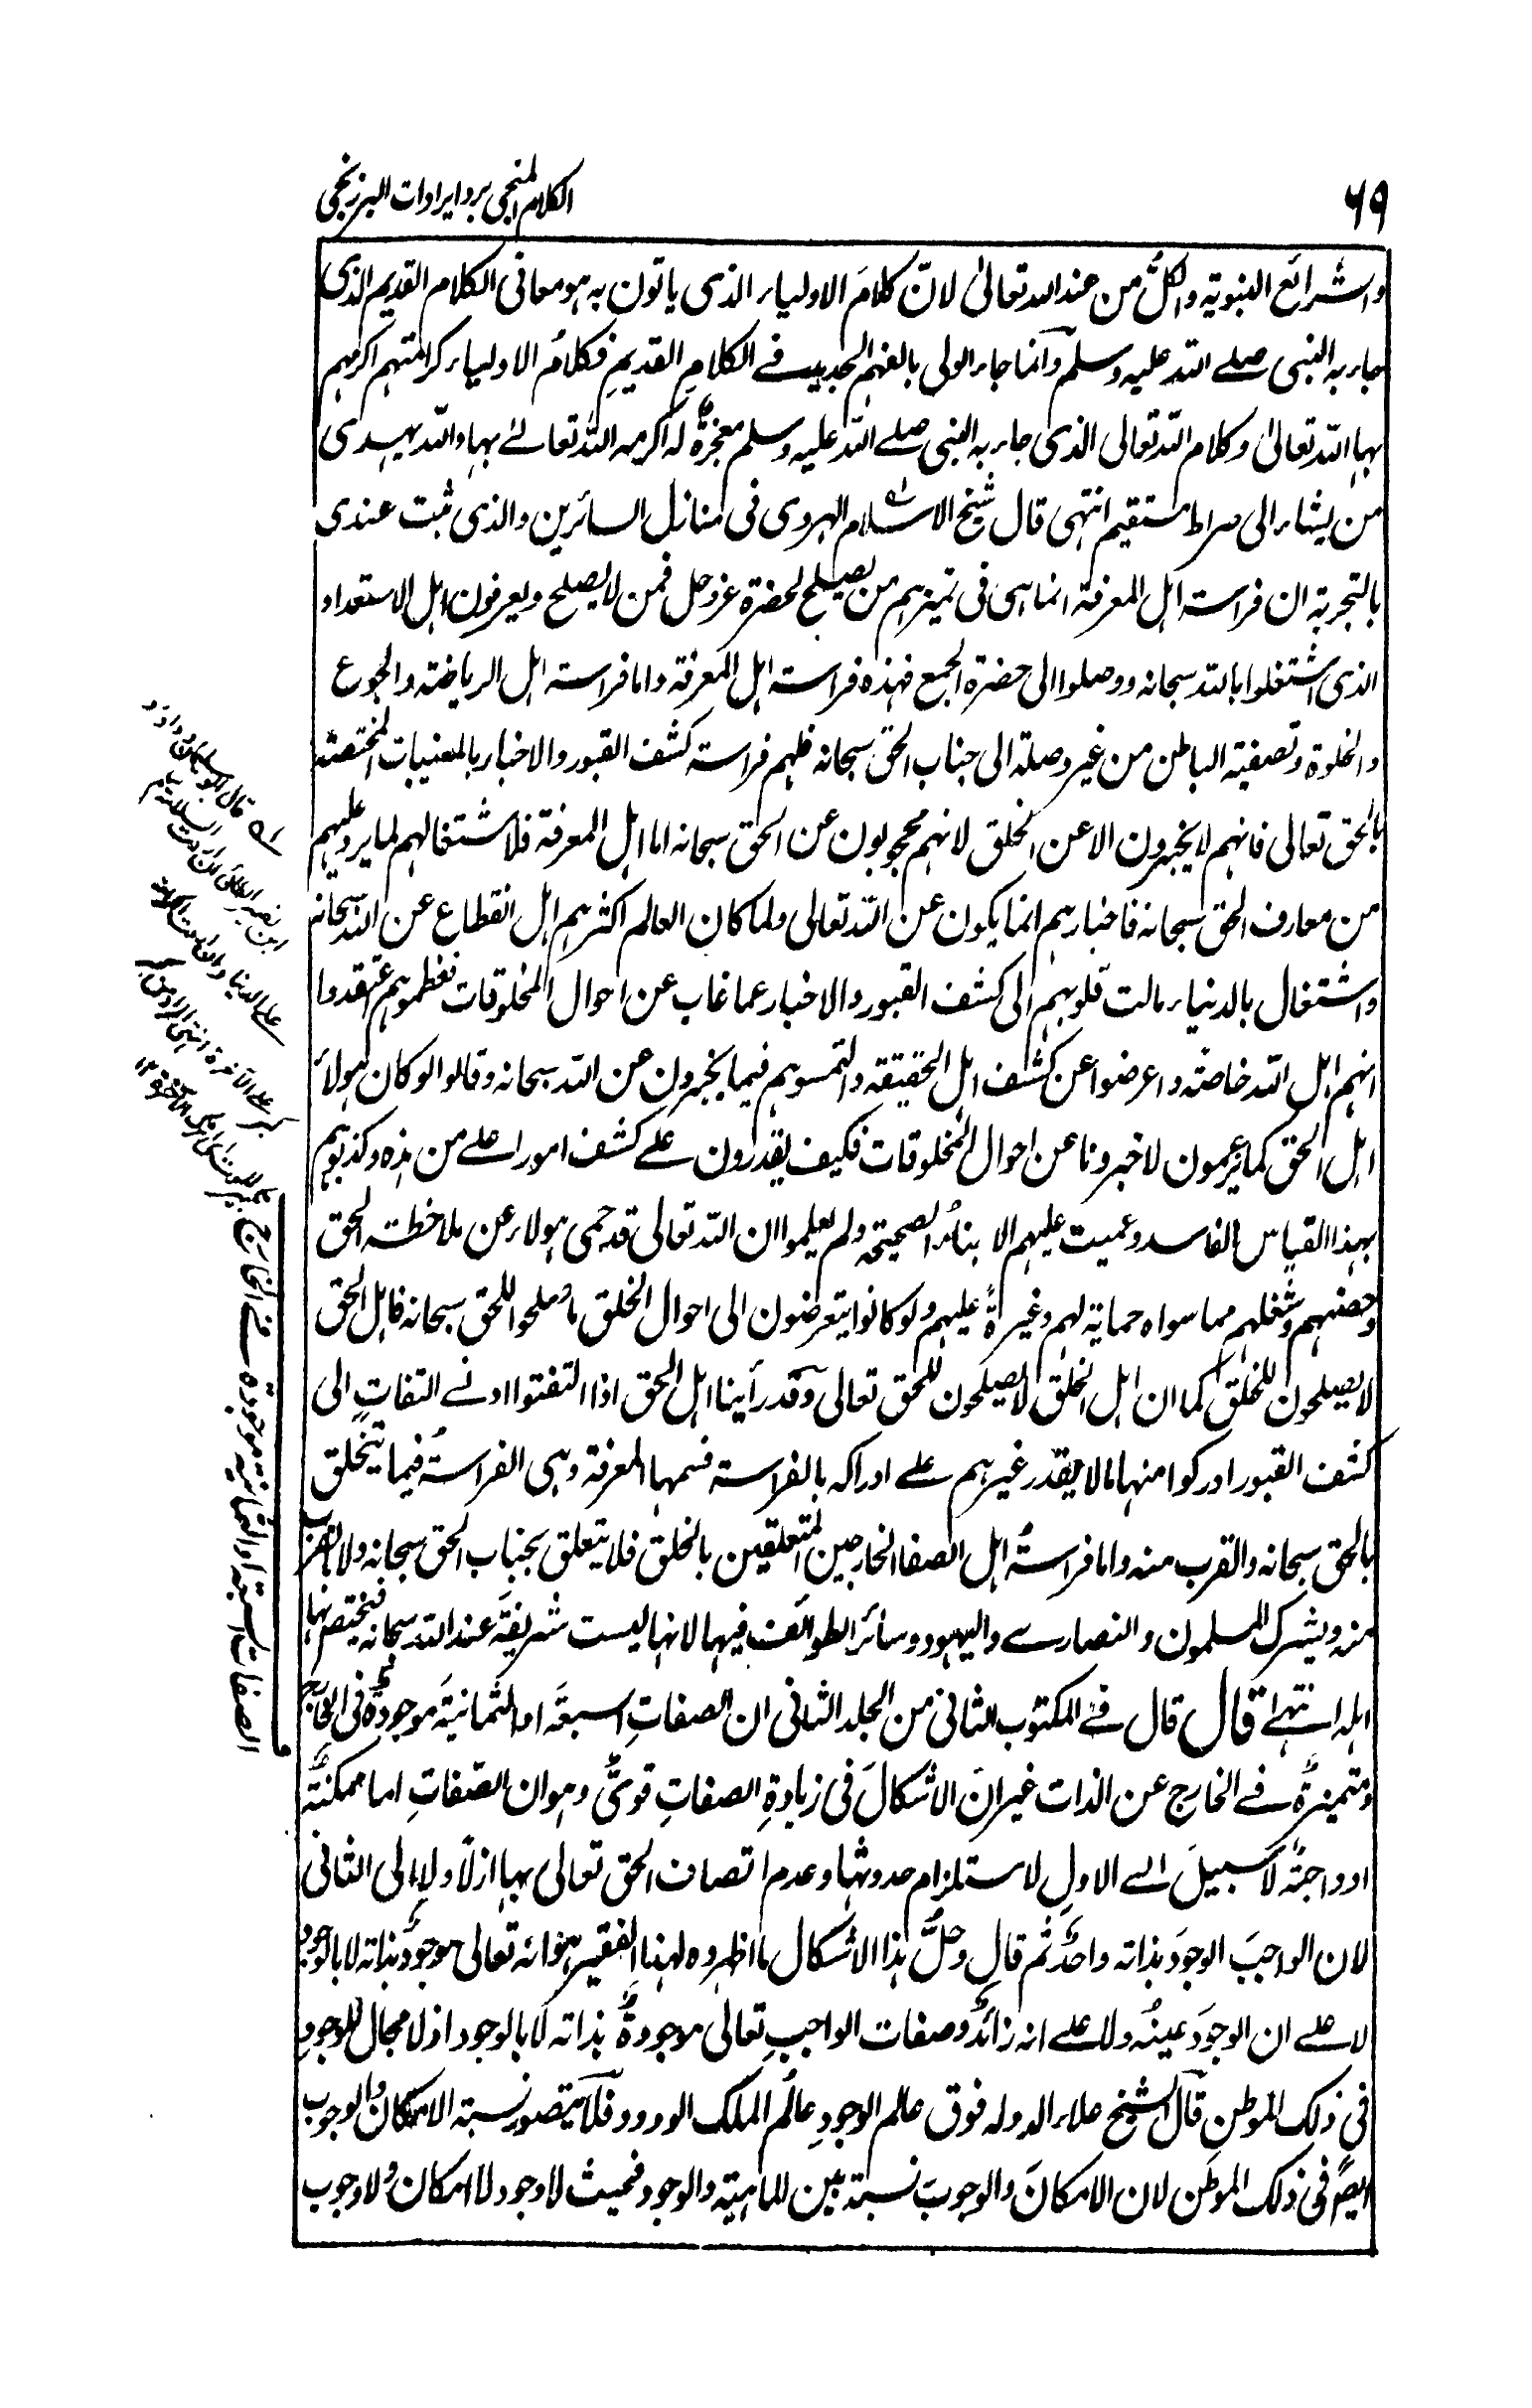 ٦٩
الكلام المنجى برد ايرادات البرزنجى
والشرائع النبوية والكلُّ من عند الله تعالىٰ لانّ كلامَ الاولياء الذى ياتون به هو معانى الكلام القديم الذى
جاء به النبى صلے الله عليه وسلم وانما جاء الولى بالفهم الجديد فے الكلامِ القديمِ فكلامُ الاولياء كرامتهم اكرمهم
بها الله تعالىٰ وكلام الله تعالى الذى جاء به النبى صلے الله عليه وسلم معجزةٌ له اكرمه الله تعالےٰ بها والله يهدى
من يشاء الى صراط مستقيم انتهى قال شيخ الاسلام الهروى فى منازل السائرين والذى ثبت عندى
بالتجربة ان فراسة اهل المعرفة انما هى فى تميزهم من يصلح لحضرة عزوجل فمن لا يصلح ويعرفون اهل الاستعداد
الذى اشتغلوا بالله سبحانه ووصلوا الى حضرة الجمع فهذه فراسة اهل المعرفة واما فراسة اهل الرياضة والجوع
والخلوة وتصفية الباطن من غير وصلة الى جناب الحق سبحانه فلهم فراسة كشف القبور والاخبار بالمغيبات المختصة
بالحق تعالى فانهم لا يخبرون الا عن الخلق لانهم محجوبون عن الحق سبحانه اما اهل المعرفة فلاشتغالهم لما يرد عليهم
من معارف الحق سبحانه فاخبارهم انما يكون عن الله تعالى ولما كان العالم اكثرهم اهل انقطاع عن الله سبحانه
واشتغال بالدنياء مالت قلوبهم الى كشف القبور والاخبار عما غاب عن احوال المخلوقات فعظموهم عتقدوا
انهم اهل الله خاصّة واعرضوا عن كشف اهل الحقيقة والتمسوهم فيما يخبرون عن الله سبحانه وقالوا لو كان هولاء
اهل الحق كما يزعمون لاخبرونا عن احوال المخلوقات فكيف يقدرون علے كشف امور اعلے من هذه وكذبوهم
بهذا القياس الفاسد وعميت عليهم الا بناءُ الصحيحة ولم يعلموا ان الله تعالى قد حمى هولاء عن ملاحظة الحق
وخصهم وشغلهم مما سواه حمايةً لهم وغيرةً عليهم ولو كانوا يتعرضون الى احوال الخلق ما صلحوا للحق سبحانه فاهل الحق
لا يصلحون للخلق كما ان اهل الخلق لا يصلحون للحق تعالى وقد رأينا اهل الحق اذا التفتوا ادنے التفاتٍ الى
كشف القبور ادركوا منها ما لا يقدر غيرهم علے ادراكه بالفراسة فسمها المعرفة وهى الفراسةُ فيما يتخلق
بالحق سبحانه والقرب منه واما فراسةُ اهل الصفا الخارجين المتعلقين بالخلق فلا يتعلق بجناب الحق سبحانه ولا بالقرب
منه ويشرك المسلمون والنصارے واليهود وسائر الطوائف فيها لانها ليست شريفةً عند الله سبحانه فيختص بها
اهله انتهے قال قال فے المكتوب الثانى من الجلد الثانى ان الصفاتِ السبعةَ او الثمانيةَ موجودةٌ فى الخارج
ومتميزةٌ فے الخارج عن الذات غير ان الاشكالَ فى زيادةِ الصفاتِ قوىٌّ وهو ان الصفاتِ اما ممكنةٌ
او واجبةٌ لا سبيلَ الے الاولِ لاستلزام حدوثها وعدم اتصاف الحق تعالى بها ازلاً ولا الى الثانى
لان الواجبَ الوجودَ بذاته واحدٌ ثم قال وحلُّ هذا الاشكال ما اظهروه لهذا الفقير هو انه تعالى موجودٌ بذاته لا بالوجود
لا علے ان الوجودَ عينُه ولا علے انه زائدٌ وصفات الواجبِ تعالى موجودةٌ بذاته لا بالوجود اذ لا مجال للوجودِ
فى ذلك الموطنِ قال الشيخ علاء الدوله فوق عالم الوجودِ عالمُ الملك الودود فلا يتصور نسبة الامكان والوجوب
ايضًا فى ذلك الموطن لان الامكانَ والوجوبَ نسبة بين الماهية والوجود فحيث لا وجود لا امكان ولا وجوب
قال ابو سليمان داؤد
ابن نصير الطائى ان اردت السلامة سلم
على الدنيا وان اردت الكرامة
كبر على الآخرة انتهى
الصفات السبعة او الثمانية موجودة فے الخارج